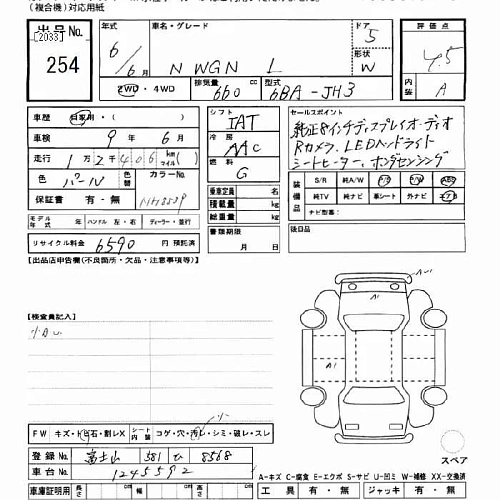 (複合機)対応用紙
出品No. 年式 車名・グレード ドア 評価点
[2033] 6 5 4.5
254 6月 N WGN L 形状 W 内装 A
2WD・4WD 排気量 660 cc 型式 6BA-JH3
車歴 自家用・( ) シフト IAT セールスポイント
車検 9年 6月 冷房 AAC 純正8インチディスプレイオーディオ
走行 1万2千406 km マイル Rカメラ、LEDヘッドライト
色 パール 色替 カラーNo. 燃料 G シートヒーター、ホンダセンシング
保証書 有・無 乗車定員 名 装備品 S/R 純A/W P/S P/W ABS
積載量 kg 純TV 純ナビ 革シート 外ナビ エアB
モデル年式 ハンドル 左・右 ディーラー・並行 総重量 kg ナビ型番:
リサイクル料金 6590 円 預託済 書類期限 月 日 後日品
【出品店申告欄(不良箇所・欠品・注意事項等)】
A1
【検査員記入】
小キズ
A1
FW キズ・トビ石・割レX シート内装 コゲ・穴・汚レ・シミ・破レ・スレ
登録No. 富士山 581 ひ 8568
スペア
車台No. 1245592
A=キズ C=腐食 E=エクボ S=サビ U=凹ミ W=補修 XX=交換済
車庫証明用 長さ cm 幅 cm 高さ cm 工具 有・無 ジャッキ 有・無